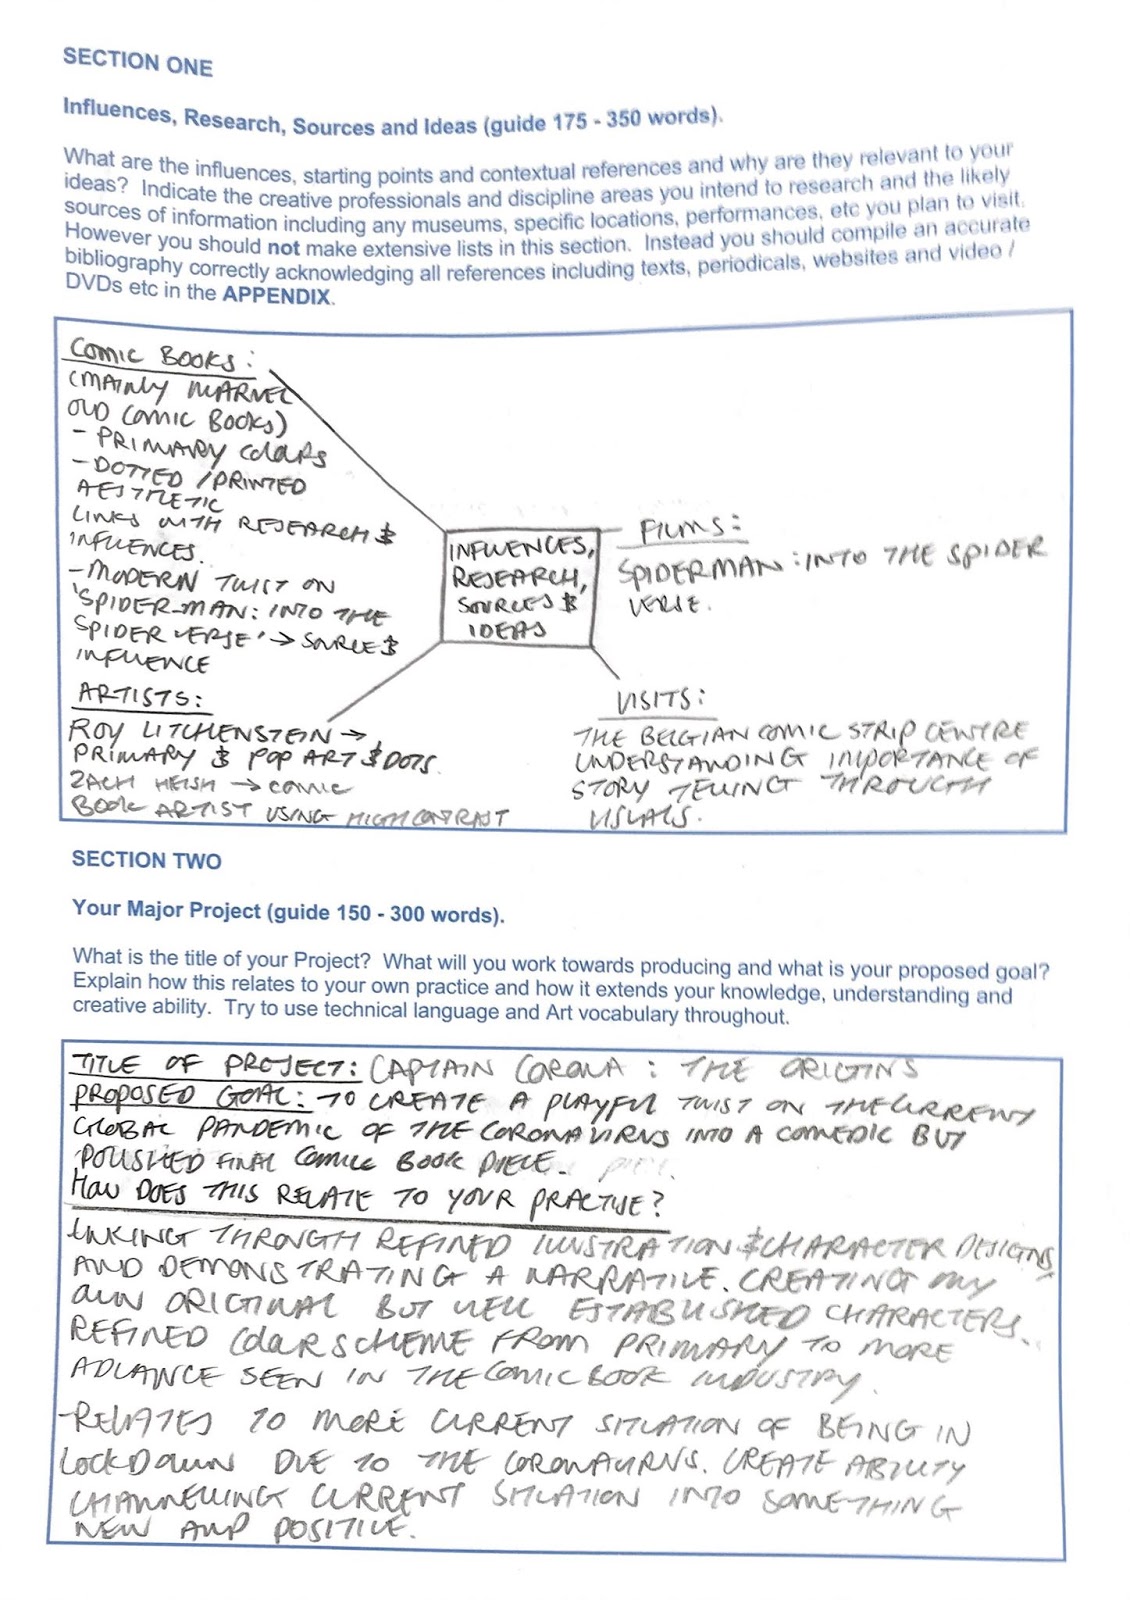 SECTION ONE
Influences, Research, Sources and Ideas (guide 175 - 350 words).
What are the influences, starting points and contextual references and why are they relevant to your
ideas? Indicate the creative professionals and discipline areas you intend to research and the likely
sources of information including any museums, specific locations, performances, etc you plan to visit.
However you should not make extensive lists in this section. Instead you should compile an accurate
bibliography correctly acknowledging all references including texts, periodicals, websites and video /
DVDs etc in the APPENDIX.
COMIC BOOKS:
(MAINLY MARVEL
OLD COMIC BOOKS)
- PRIMARY COLOURS
- DOTTED / PRINTED
AESTHETIC
LINKS WITH RESEARCH &
INFLUENCES.
- MODERN TWIST ON
'SPIDER-MAN: INTO THE
SPIDER VERSE' → SOURCE &
INFLUENCE
ARTISTS:
ROY LITCHENSTEIN →
PRIMARY & POP ART & DOTS.
ZACH → COMIC
BOOK ARTIST USING HIGH CONTRAST
INFLUENCES,
RESEARCH,
SOURCES &
IDEAS
FILMS:
SPIDERMAN: INTO THE SPIDER
VERSE.
VISITS:
THE BELGIAN COMIC STRIP CENTRE
UNDERSTANDING IMPORTANCE OF
STORY TELLING THROUGH
VISUALS.
SECTION TWO
Your Major Project (guide 150 - 300 words).
What is the title of your Project? What will you work towards producing and what is your proposed goal?
Explain how this relates to your own practice and how it extends your knowledge, understanding and
creative ability. Try to use technical language and Art vocabulary throughout.
TITLE OF PROJECT: CAPTAIN CORONA: THE ORIGINS
PROPOSED GOAL: TO CREATE A PLAYFUL TWIST ON THE CURRENT
GLOBAL PANDEMIC OF THE CORONAVIRUS INTO A COMEDIC BUT
POLISHED FINAL COMIC BOOK PIECE.
HOW DOES THIS RELATE TO YOUR PRACTISE?
LINKING THROUGH REFINED ILLUSTRATION & CHARACTER DESIGNS,
AND DEMONSTRATING A NARRATIVE. CREATING MY
OWN ORIGINAL BUT WELL ESTABLISHED CHARACTERS.
REFINED COLOUR SCHEME FROM PRIMARY TO MORE
ADVANCE SEEN IN THE COMIC BOOK INDUSTRY.
- RELATES TO MORE CURRENT SITUATION OF BEING IN
LOCKDOWN DUE TO THE CORONAVIRUS. CREATE ABILITY
CHANNELLING CURRENT SITUATION INTO SOMETHING
NEW AND POSITIVE.